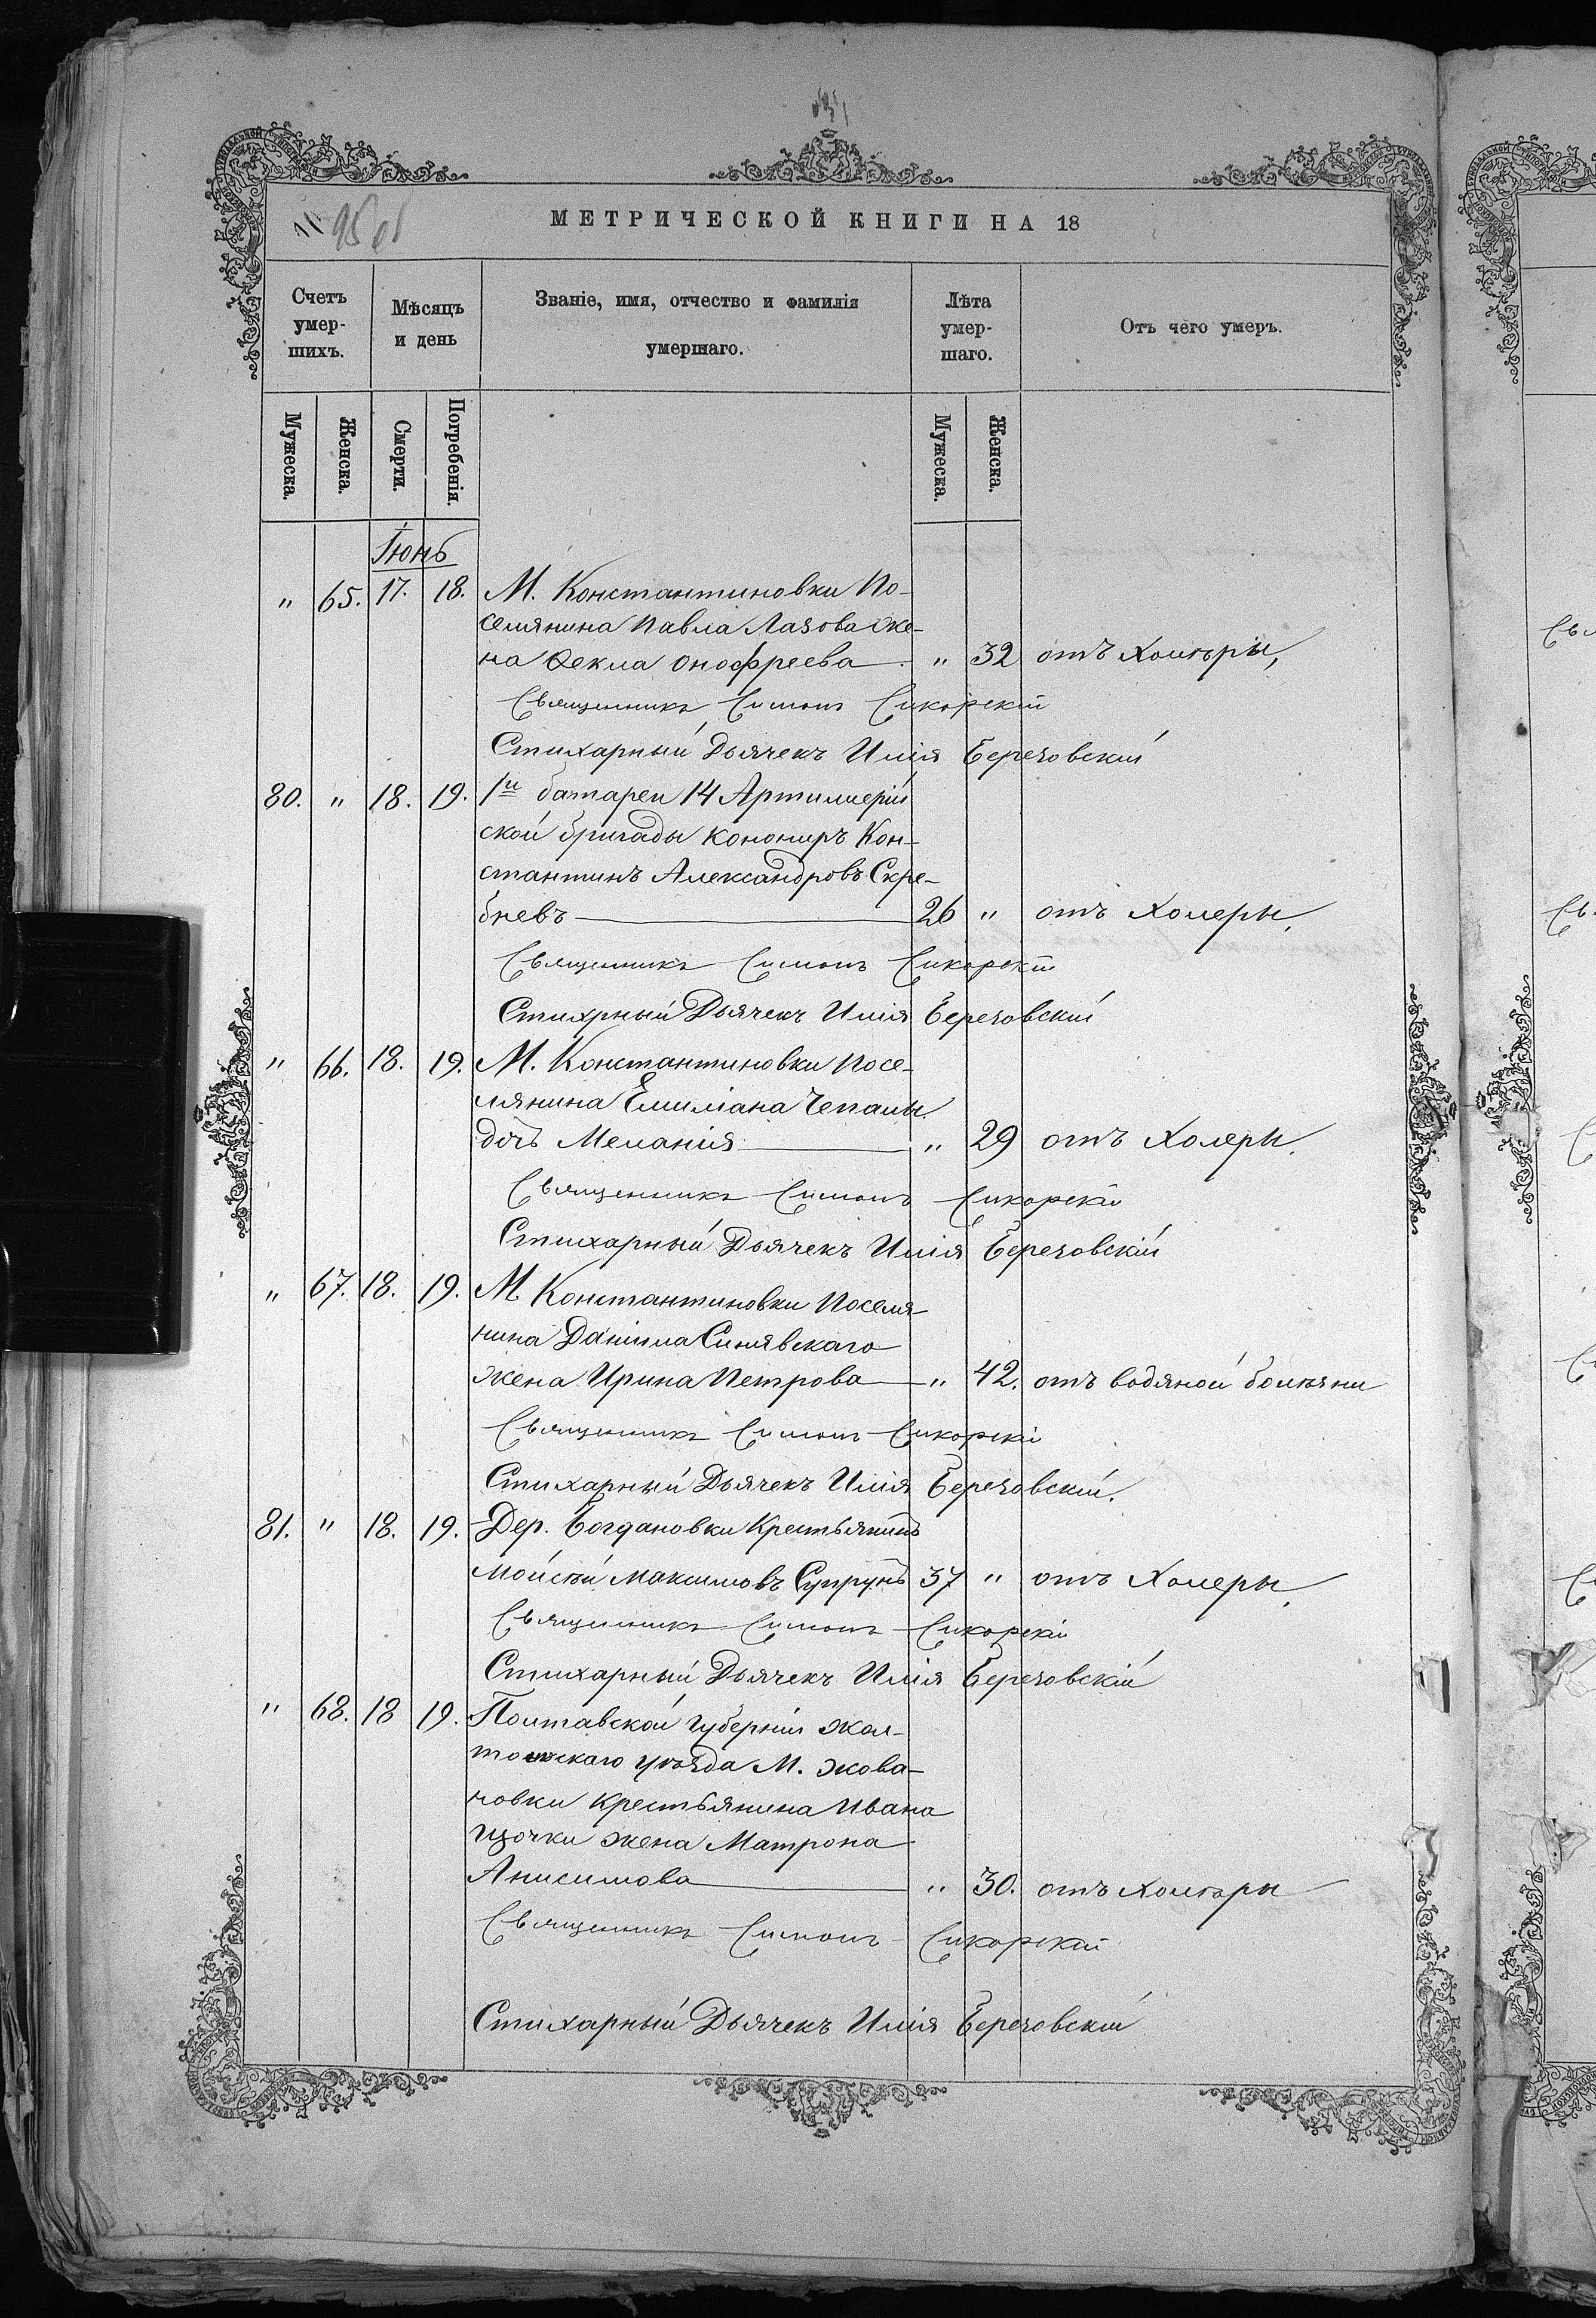 95 об
МЕТРИЧЕСКОЙ КНИГИ НА 18
Счетъ умершихъ. Мѣсяцъ и день Званіе, имя, отчество и фамилія умершаго. Лѣта умершаго. Отъ чего умеръ.
Мужеска. Женска. Смерти. Погребенія. Мужеска. Женска.
Іюнь
" 65. 17. 18. М. Константиновки По-
селянина Павла Лазова же-
на Ѳекла Онофреева " 32 отъ холѣры,
Священникъ Симонъ Сикорскій
Стихарный Дьячекъ Илія Березовскій
80. " 18. 19. 1й батареи 14 Артиллерій
ской бригады конониръ Кон-
стантинъ Александровъ Скре-
бневъ 26 " отъ Холеры,
Священникъ Симонъ Сикорскій
Стихрный Дьячекъ Илія Березовскій
" 66. 18. 19. М. Константиновки Посе-
лянина Емиліана Чепалы
дочь Меланія " 29 отъ Холеры.
Священникъ Симонъ Сикорскій
Стихарный Дьячекъ Илія Березовскій
" 67. 18. 19. М Константиновки Поселя-
нина Даніила Синявскаго
жена Ирина Петрова " 42. отъ водяной болѣзни
Священникъ Симонъ Сикорскій
Стихарный Дьячекъ Илія Березовскій.
81. " 18. 19. Дер. Богдановки Крестьянинъ
Мойсѣй Максимовъ Супрунъ 37 " отъ Холеры,
Священникъ Симонъ Сикорскій
Стихарный Дьячекъ Илія Березовскій
" 68. 18 19. Полтавской губерніи жол-
тонскаго уѣзда М. Жова-
новки крестьянина Ивана
жена Матрона
Анисимова " 30. отъ холѣры
Священникъ Симонъ Сикорскій
Стихарный Дьячекъ Илія Березовскій